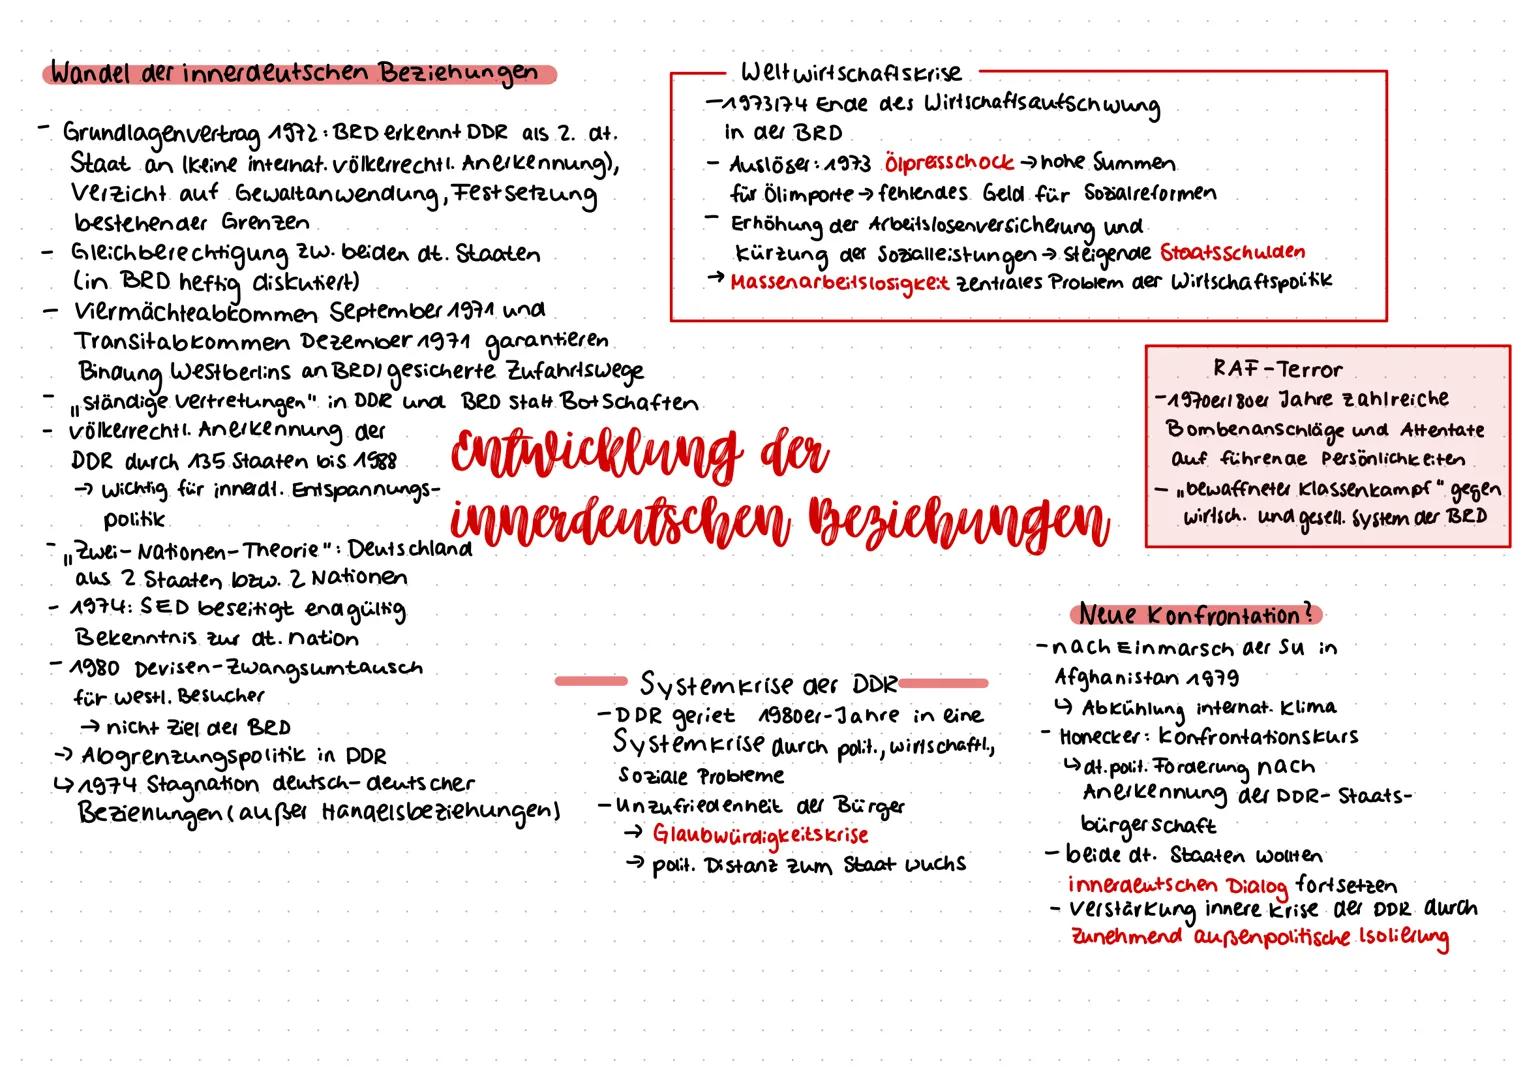 Wandel der innerdeutschen Beziehungen
- Grundlagenvertrag 1972: BRD erkennt DDR als 2. dt.
Staat an (keine internat. völkerrechtl. Anerkennung),
Verzicht auf Gewaltanwendung, Festsetzung
bestehender Grenzen
- Gleichberechtigung zw. beiden dt. Staaten
(in BRD heftig diskutiert)
- Viermächteabkommen September 1971 und
Transitabkommen Dezember 1971 garantieren
Bindung Westberlins an BRD/gesicherte Zufahrtswege
- „ständige Vertretungen" in DDR und BRD statt Botschaften
- völkerrechtl. Anerkennung der
DDR durch 135 Staaten bis 1988
→ wichtig für innerdt. Entspannungs-
politik
- „Zwei-Nationen-Theorie": Deutschland
aus 2 Staaten bzw. 2 Nationen
- 1974: SED beseitigt endgültig
Bekenntnis zur dt. nation
- 1980 Devisen-Zwangsumtausch
für westl. Besucher
→ nicht Ziel der BRD
→ Abgrenzungspolitik in DDR
↳ 1974 Stagnation deutsch-deutscher
Beziehungen (außer Handelsbeziehungen)
Weltwirtschaftskrise
- 1973/74 Ende des Wirtschaftsaufschwung
in der BRD
- Auslöser: 1973 Ölpreisschock → hohe Summen
für Ölimporte → fehlendes Geld für Sozialreformen
- Erhöhung der Arbeitslosenversicherung und
Kürzung der Sozialleistungen → steigende Staatsschulden
→ Massenarbeitslosigkeit zentrales Problem der Wirtschaftspolitik
RAF-Terror
- 1970er/80er Jahre zahlreiche
Bombenanschläge und Attentate
auf führende Persönlichkeiten
- „bewaffneter Klassenkampf" gegen
wirtsch. und gesell. System der BRD
Entwicklung der
innerdeutschen Beziehungen
Systemkrise der DDR
- DDR geriet 1980er-Jahre in eine
Systemkrise durch polit., wirtschaftl.,
Soziale Probleme
- Unzufriedenheit der Bürger
→ Glaubwürdigkeitskrise
→ polit. Distanz zum Staat wuchs
Neue Konfrontation?
- nach Einmarsch der Su in
Afghanistan 1979
↳ Abkühlung internat. Klima
- Honecker: Konfrontationskurs
↳ dt. polit. Forderung nach
Anerkennung der DDR-Staats-
bürgerschaft
- beide dt. Staaten wollten
innerdeutschen Dialog fortsetzen
- Verstärkung innere Krise der DDR durch
zunehmend außenpolitische Isolierung